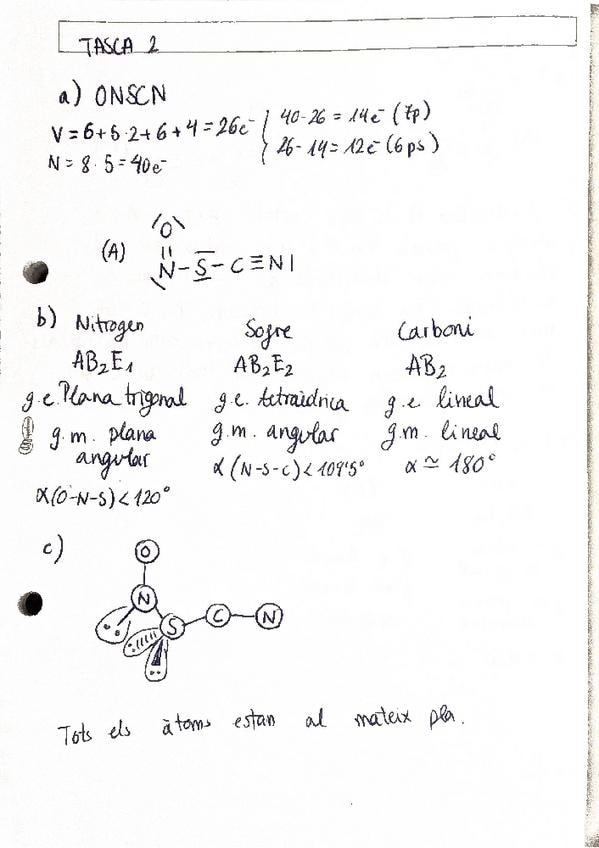 TASCA 2
a) ONSCN
V = 6+5·2+6+4 = 26e⁻ { 40-26 = 14e⁻ (7p)
N = 8·5 = 40e⁻ { 26-14 = 12e⁻ (6ps)
(A)
O
N - S - C ≡ N
b) Nitrogen Sofre Carboni
AB₂E₁ AB₂E₂ AB₂
g.e. Plana trigonal g.e. tetraèdrica g.e lineal
g.m. plana g.m. angular g.m. lineal
angular α (N-S-C) < 109'5° α ≃ 180°
α(O-N-S) < 120°
c)
O
N
S C N
Tots els àtoms estan al mateix pla.